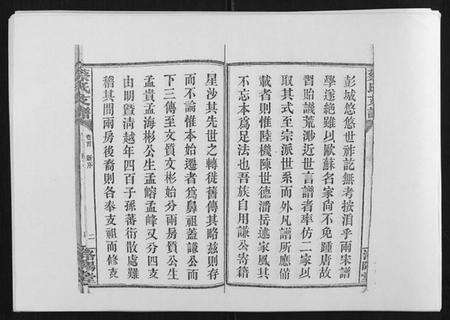 彭城悠悠世祚訖無考按消乎兩宋譜
學遂絕雖以歐蘇名家尚不免踵唐故
習貽譏荒渺近世言譜者率仿二家以
取其式至宗派世系而外凡譜所應備
載者則惟陸機陳世德潘岳述家風其
不忘本爲足法也吾族自用謙公寄籍
星沙其先世之轉徙舊傳其略茲則存
而不論惟本始遷者爲鼻祖蓋謙公而
下三傳至文質文彬始分兩房質公生
孟貴孟海彬公生孟嶠孟峰又分四支
由明曁淸越年四百子孫蕃衍散處難
稽其間兩房後裔則各奉支祖而修支
蔡氏支譜
卷首
二
濟陽堂